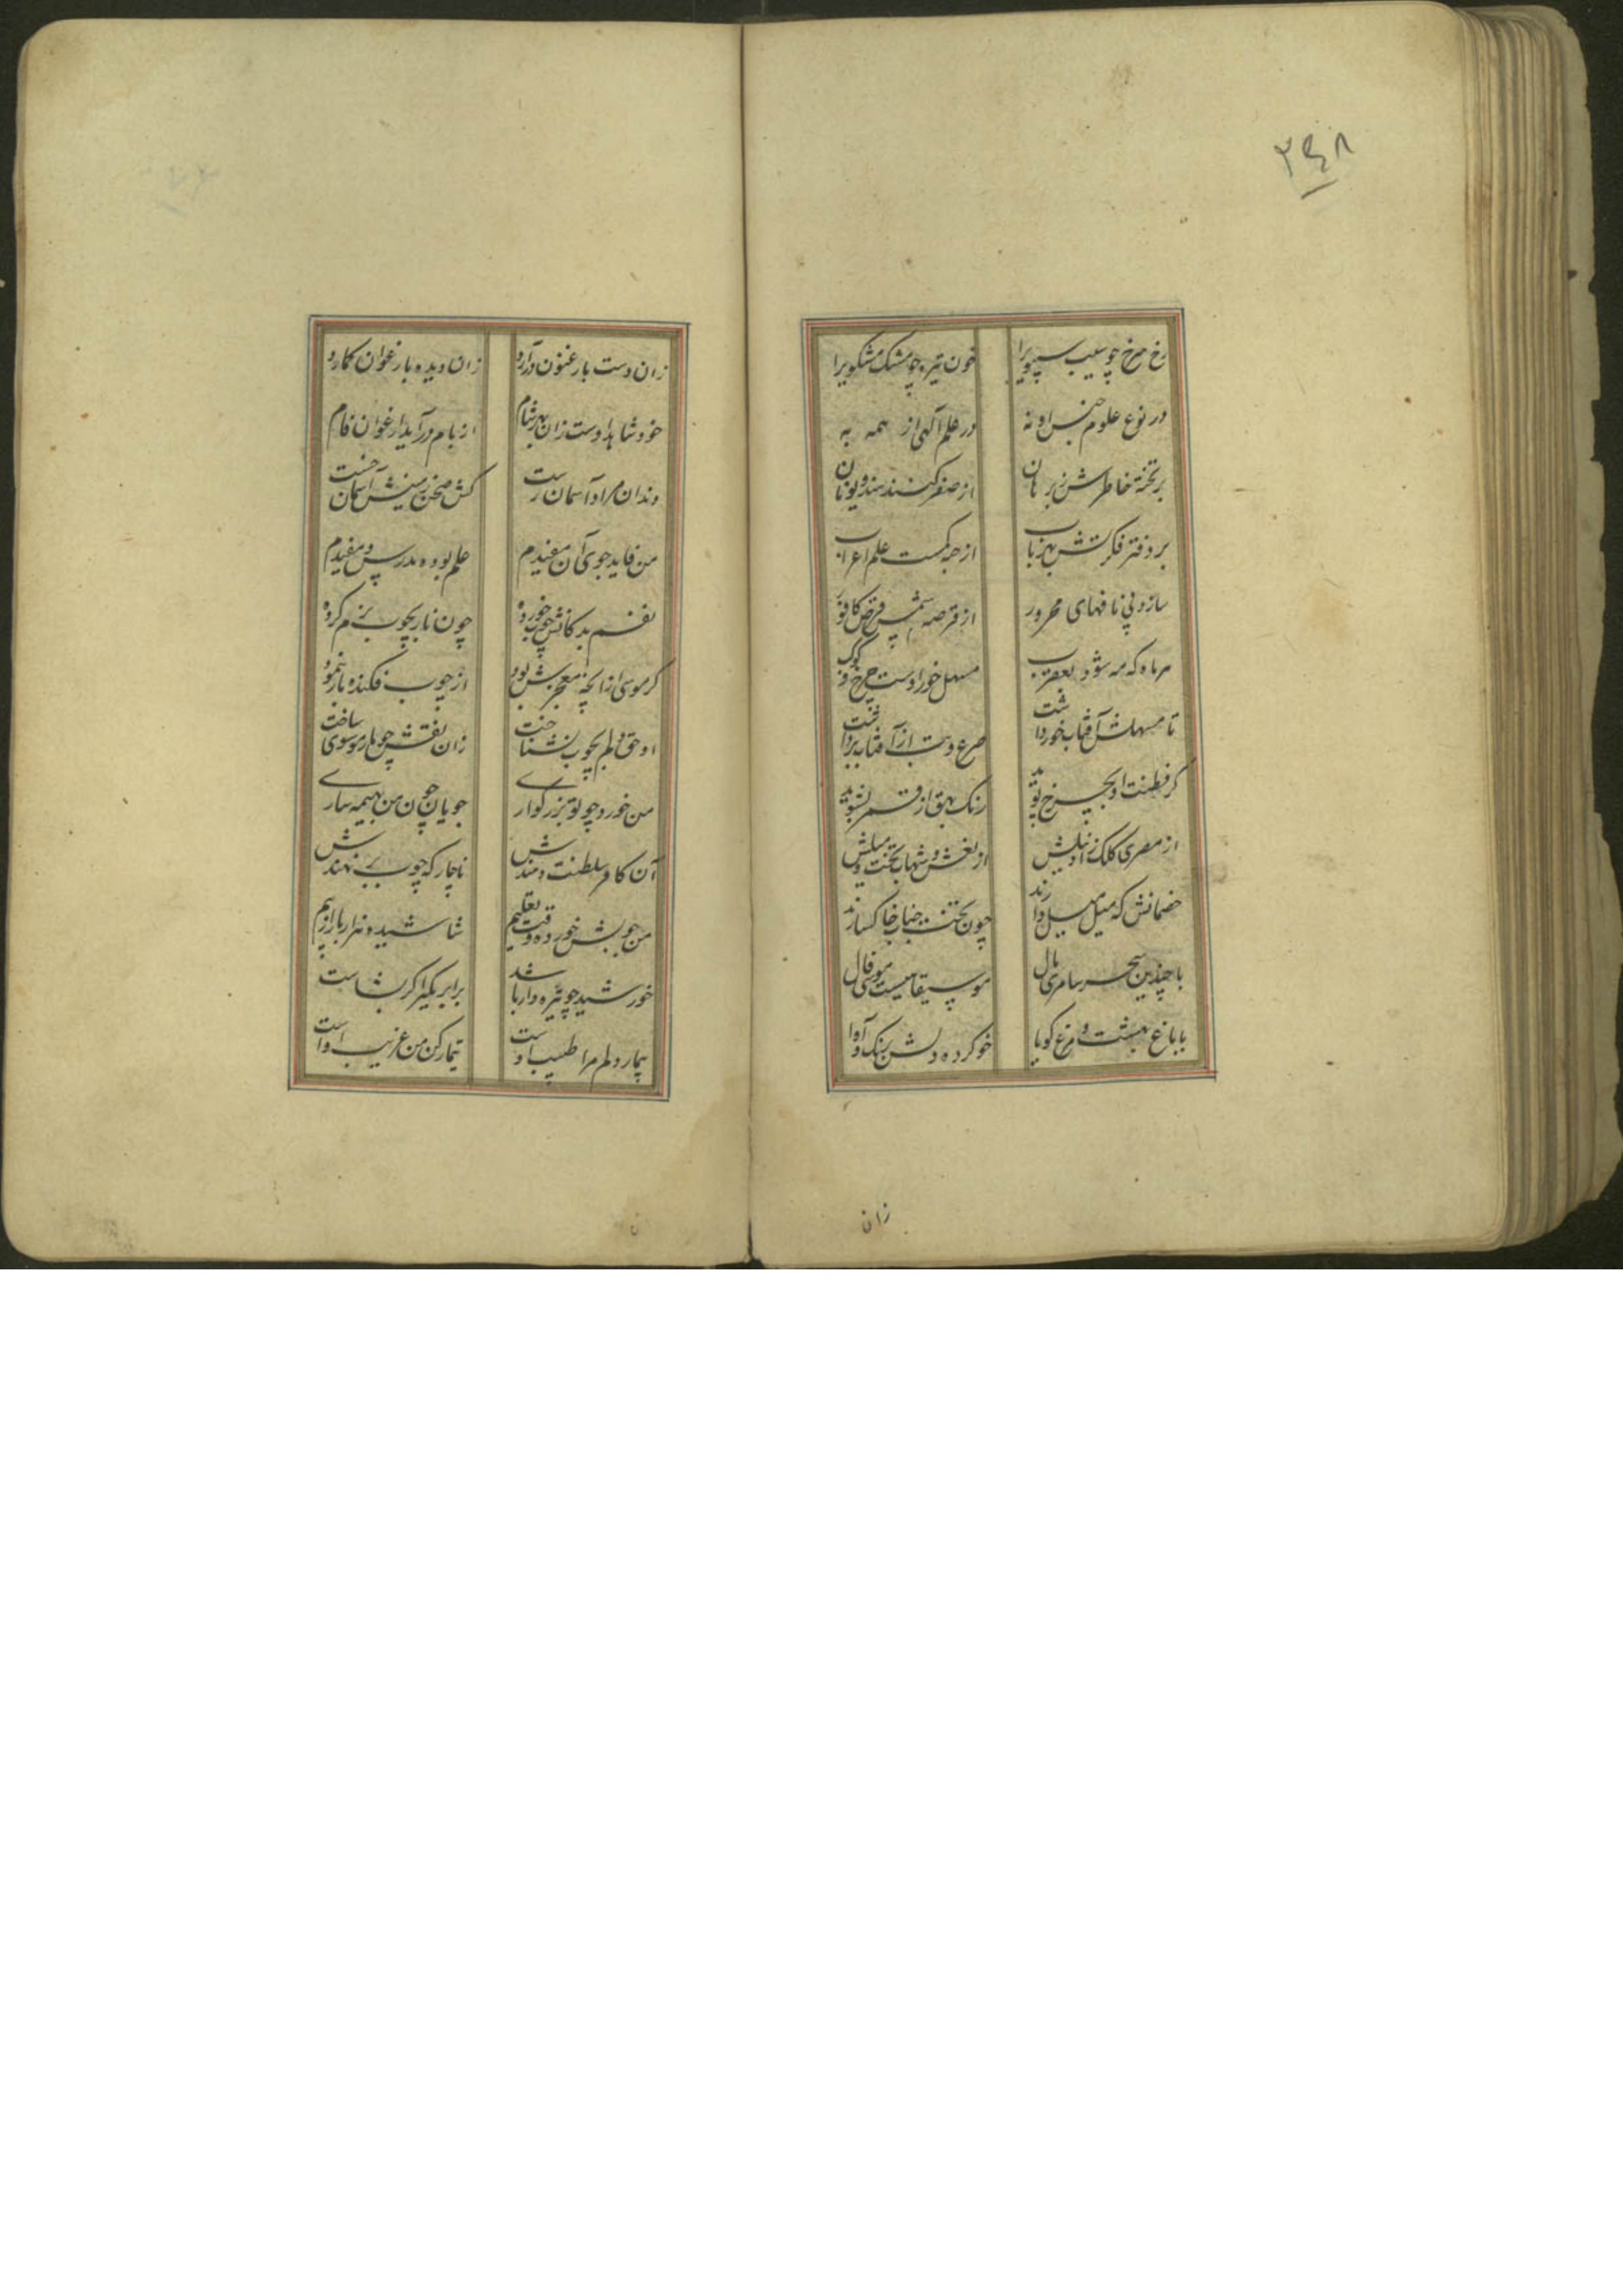 ۲۴۸
رخ سرخ چو سیب سپویرا خون تیره چو مشک مشکویرا
در نوع علوم جنس او نه در علم الهی از همه به
بر تخته خاطرش ز برهان از صفر کنند هند و یونان
بر دفتر فکرتش بهر باب از جهل کمست علم اعراب
سازد پی نافهای محرور از قرصه شمس قرص کافور
هر ماه که مه شود بعقرب مسهل خور اوست چرخ
تا مسهلش آفتاب خوردا شت صرع و تب از آفتاب برداشت
کر فطنت او بچرخ پوید رنک بهق از قمر بشوید
از مصری کلک زاد نیلش از نعش و شهاب تخت و میلش
خصمانش که میل میل دارند چون تخت جناب خاکسارند
با چندین سحر سامری بال موسیقا هیست موسی فال
با باغ بهشت و مرغ کویا خو کرده دلش بسنک و آوا
زان
زان دست بارغنون درآرد زان دیده بارغوان کمارد
خود شاهد اوست زان بهر شام از بام درآید ارغوان فام
دندان مراد آسمان رست کش صحن زمینش آسمان
من فاید جوی آن مفیدم علم بوده مدرس و مفیدم
نفسم بدکانش چوب خورده چون نار بچوب بزم کرده
کر موسی از انچه معجزش بود از چوب فکنده مار بنمود
او حق دلم بچوب بشناخت زان نفس چو مار موسوی ساخت
من خورد چو تو بزرکواری جویان چون من بهیمه ساری
آن کافر سلطنت دهندش ناچار که چوب بر نهندش
من چوبش خورده وقت تعلیم شاشیده هزار بار از بیم
خورشید چو تیره وار باشد برابر مکیر اکر بشاست
بیمار دلم مرا طبیب اوست تیمار کن من غریب اوست